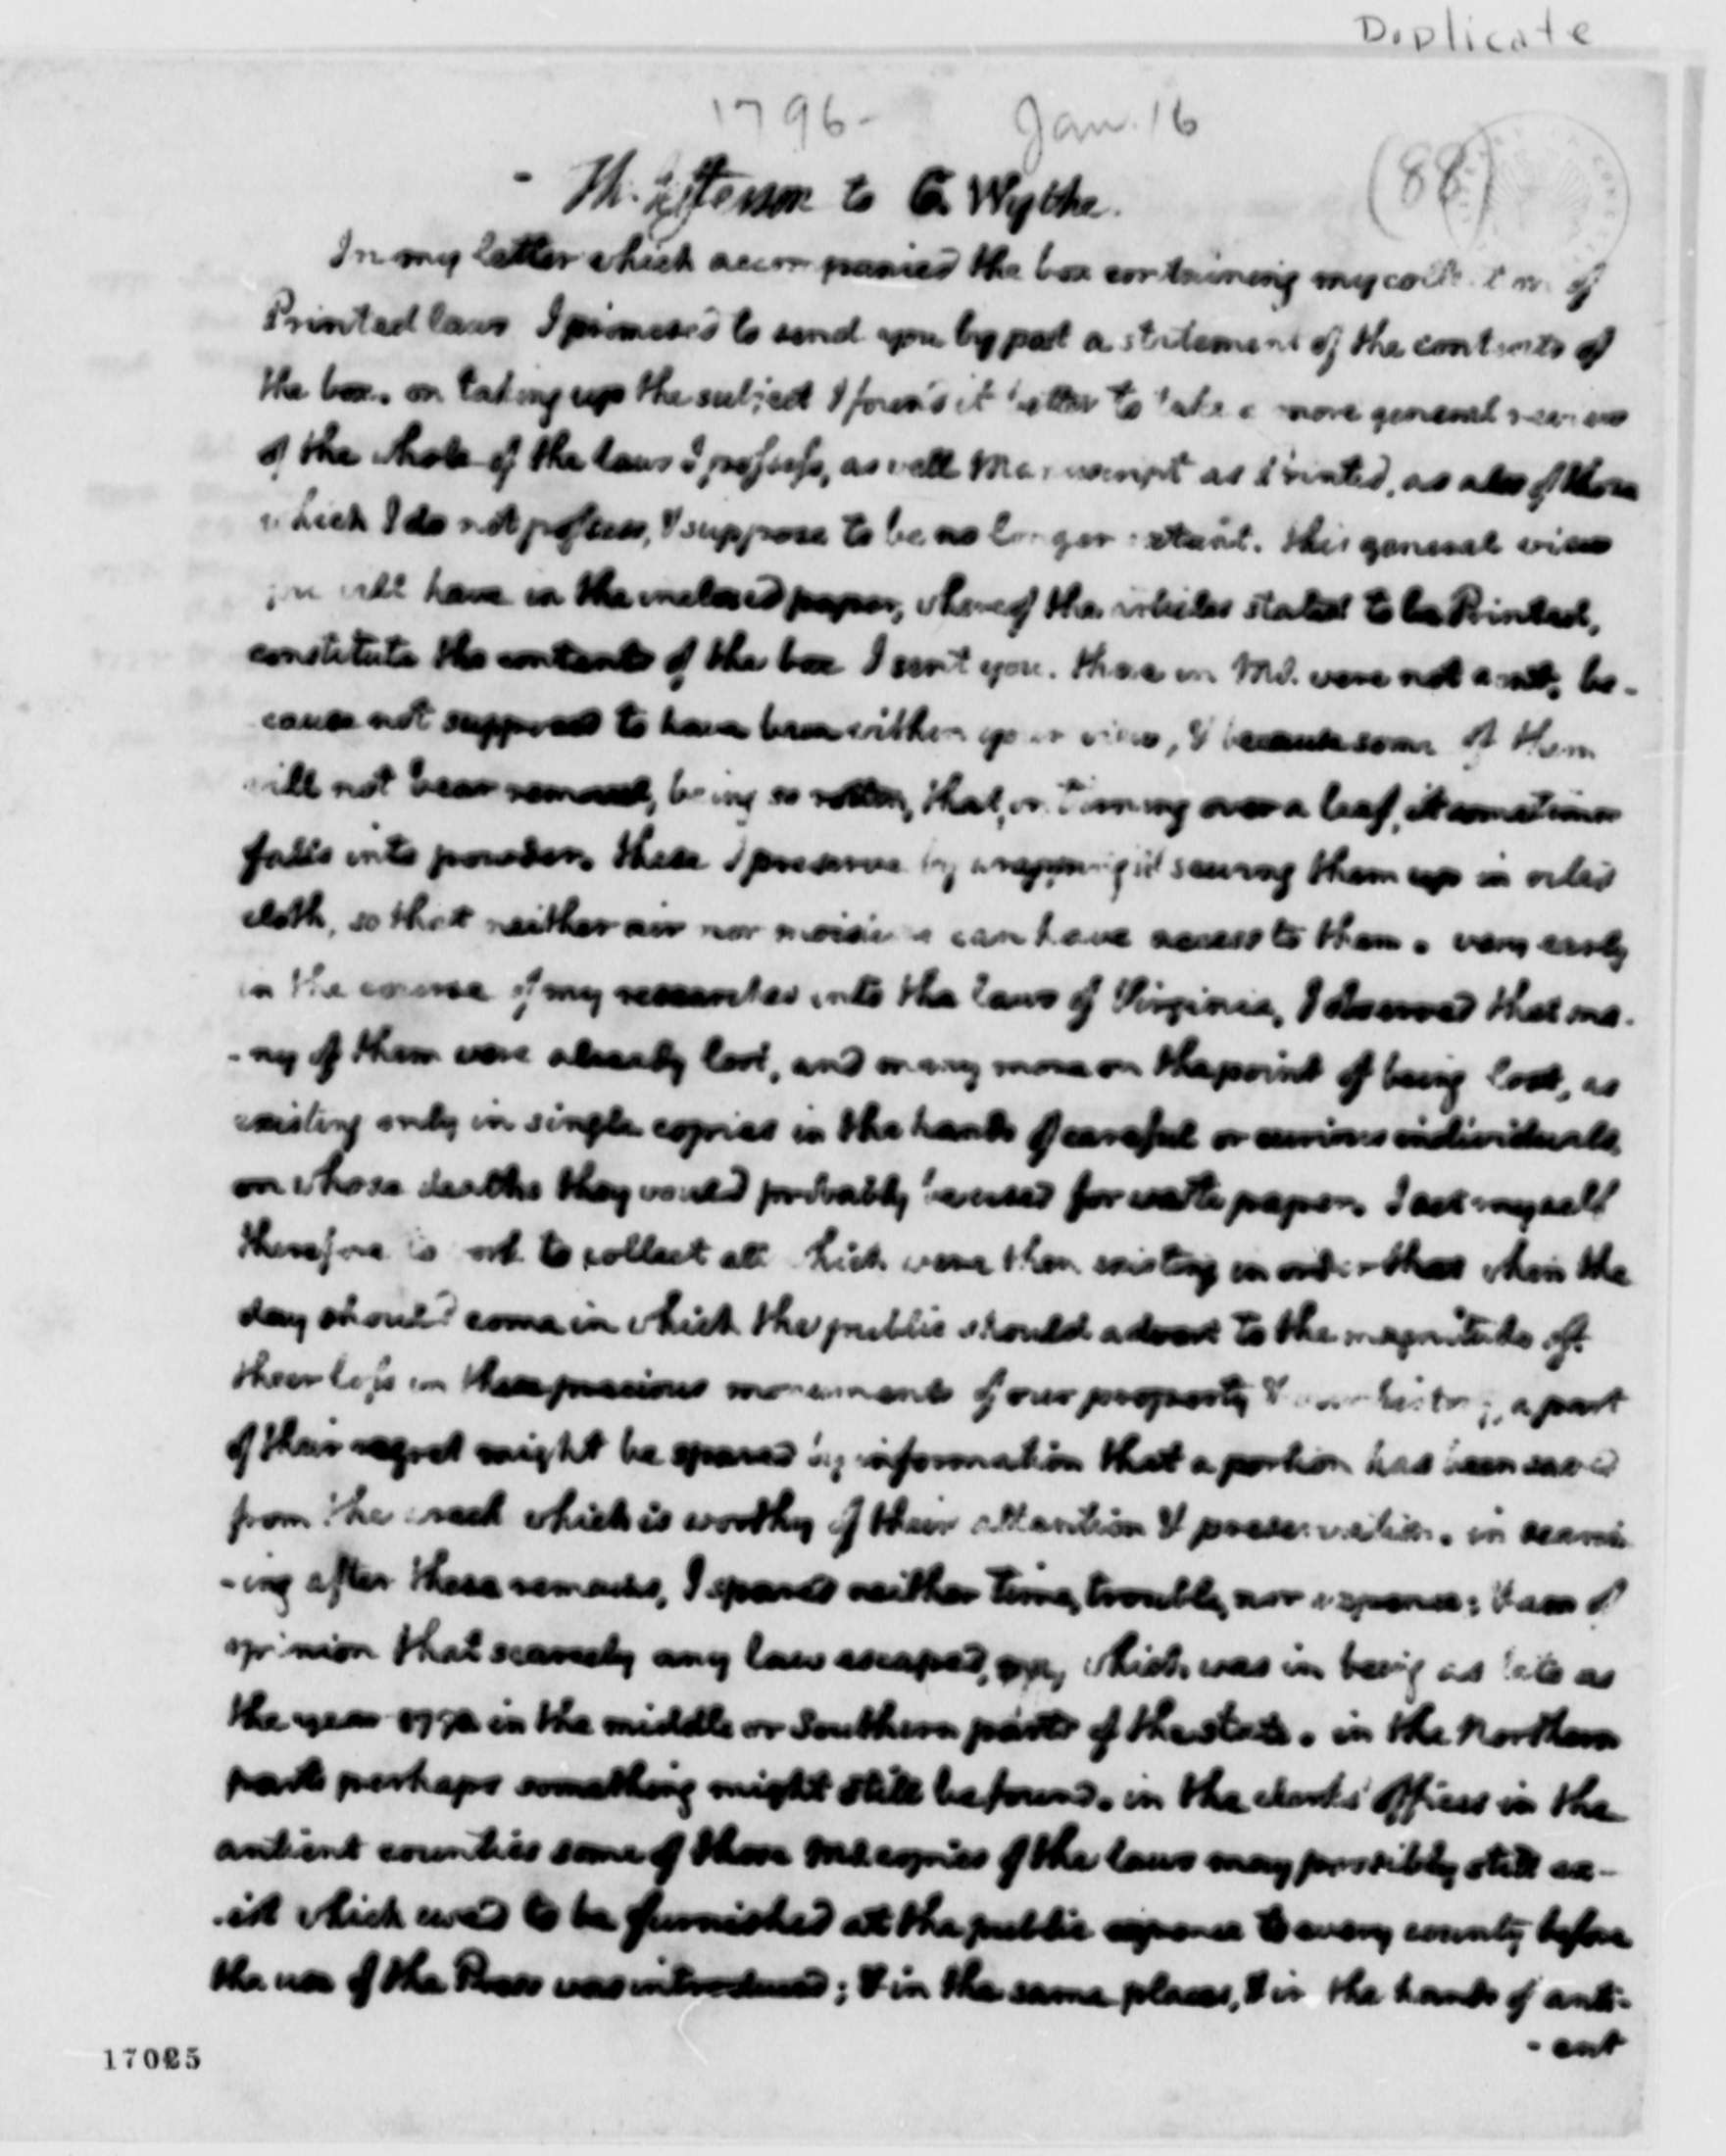 Duplicate
1796- Jan. 16
(88)
- Th. Jefferson to G. Wythe.
In my letter which accompanied the box containing my collection of
Printed laws I promised to send you by post a statement of the contents of
the box. on taking up the subject I found it better to take a more general review
of the whole of the laws I possess, as well Manuscript as Printed, as also of those
which I do not possess, & suppose to be no longer extant. this general view
you will have in the inclosed paper, whereof the articles stated to be Printed,
constitute the contents of the box I sent you. those in MS. were not sent, be-
cause not supposed to have been within your view, & because some of them
will not bear removal, being so rotten, that, on turning over a leaf, it sometimes
falls into powder. these I preserve by wrapping & sewing them up in oiled
cloth, so that neither air nor moisture can have access to them. very early
in the course of my researches into the laws of Virginia, I observed that ma-
-ny of them were already lost, and many more on the point of being lost, as
existing only in single copies in the hands of careful or curious individuals,
on whose deaths they would probably be used for waste paper. I set myself
therefore to work to collect all which were then existing in order that when the
day should come in which the public should advert to the magnitude of
their loss in these precious monuments of our property & our history, a part
of their regret might be spared by information that a portion has been saved
from the wreck which is worthy of their attention & preservation. in search-
-ing after these remains, I spared neither time, trouble, nor expence; & am of
opinion that scarcely any law escaped me, which was in being as late as
the year 1790 in the middle or Southern parts of the state. in the Northern
parts perhaps something might still be found. in the clerks' offices in the
antient counties some of those MS. copies of the laws may possibly still ex-
-ist which used to be furnished at the public expence to every county before
the use of the Press was introduced; & in the same places, & in the hands of anti-
-ent
17025